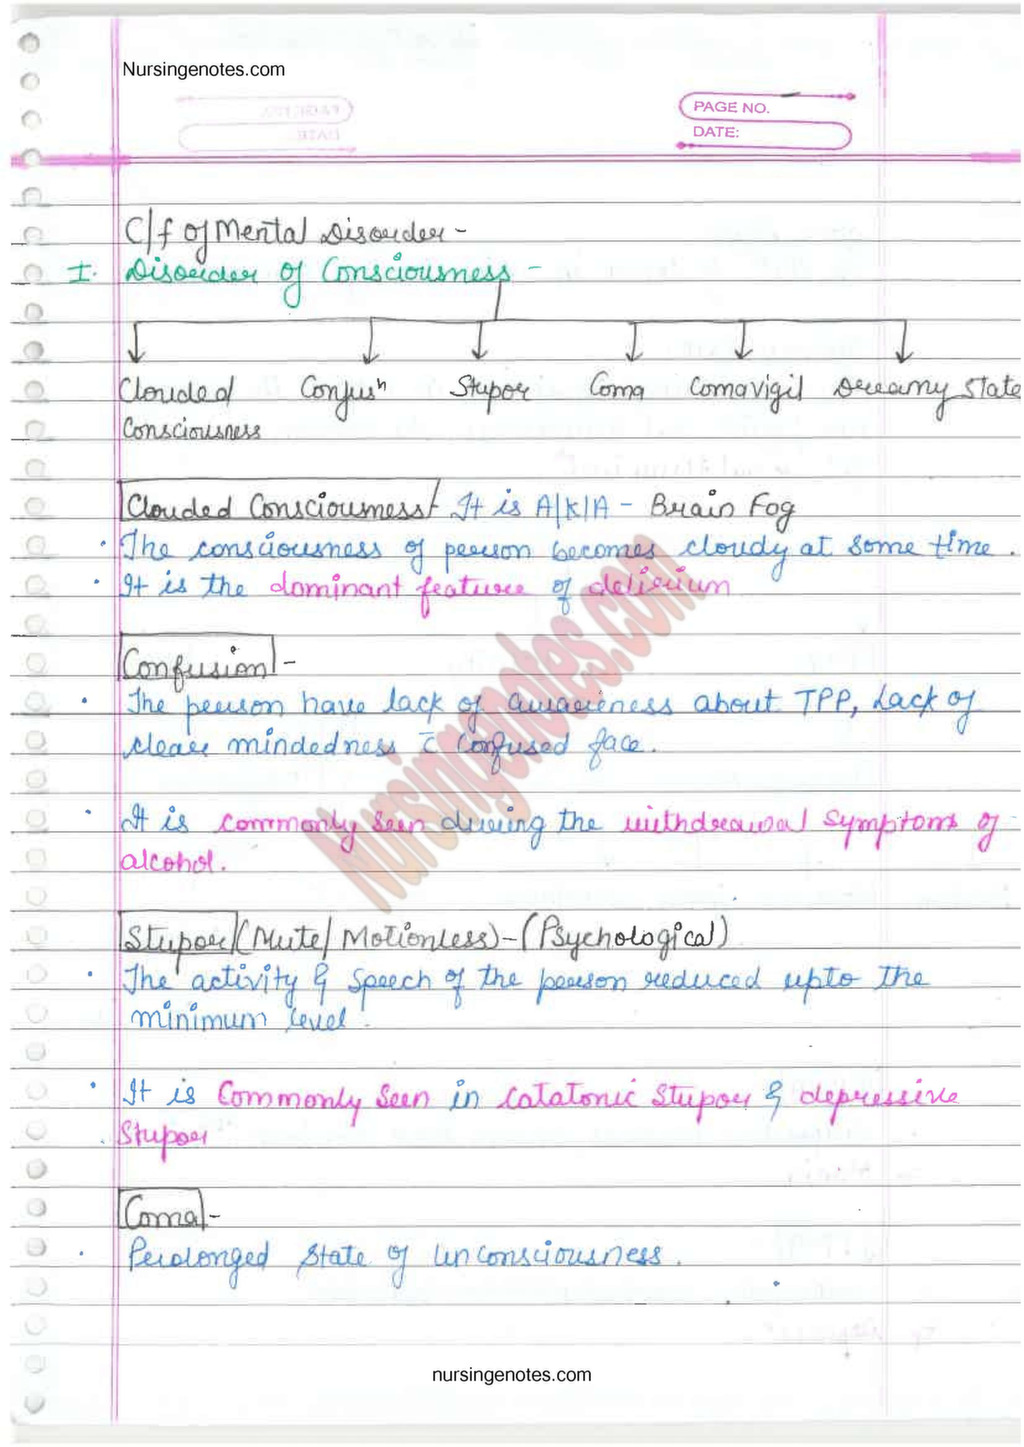 Nursingenotes.com
PAGE NO.
DATE:
C/f of Mental Disorder -
I. Disorder of Consciousness -
Clouded Confusⁿ Stupor Coma Comavigil Dreamy State
Consciousness
Clouded Consciousness It is A/K/A - Brain Fog
· The consciousness of person becomes cloudy at some time.
· It is the dominant feature of delirium
Confusion -
· The person have lack of awareness about TPP, Lack of
clear mindedness c̄ confused face.
· It is commonly seen during the withdrawal symptoms of
alcohol.
Stupor (Mute/Motionless) - (Psychological)
· The activity & speech of the person reduced upto the
minimum level.
· It is commonly seen in catatonic stupor & depressive
stupor
Coma -
· Prolonged state of unconsciousness.
Nursingenotes.com
nursingenotes.com